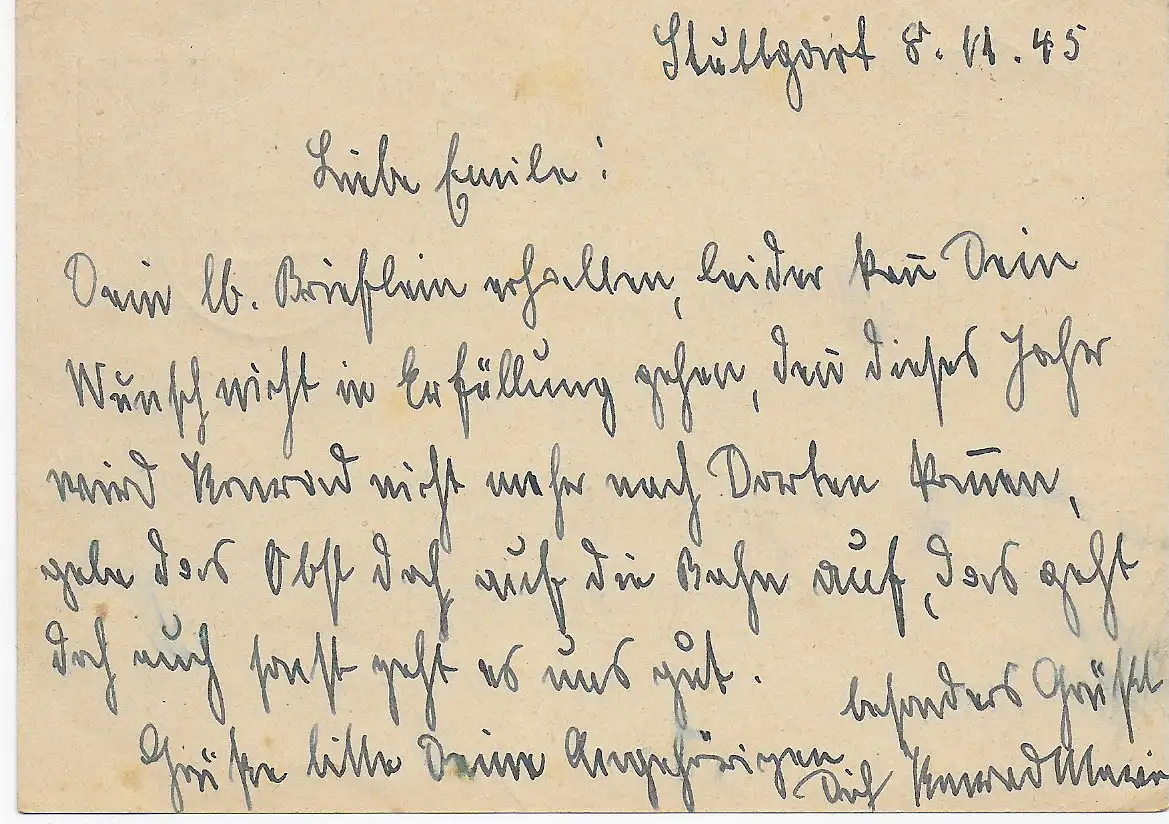 Stuttgart 8.11.45
Liebe Emile!
Dein lb. Brieflein erhalten, leider kan̄ Dein
Wunsch nicht in Erfüllung gehen, den̄ dieses Jahr
wird Konrad nicht mehr nach Dorten kom̄en,
gebe das Obst doch auf die Bahn auf, das geht
doch auch sonst geht es uns gut.
besonders Grüßt
Grüße bitte Deine Angehörigen
Dich Konrad Marie